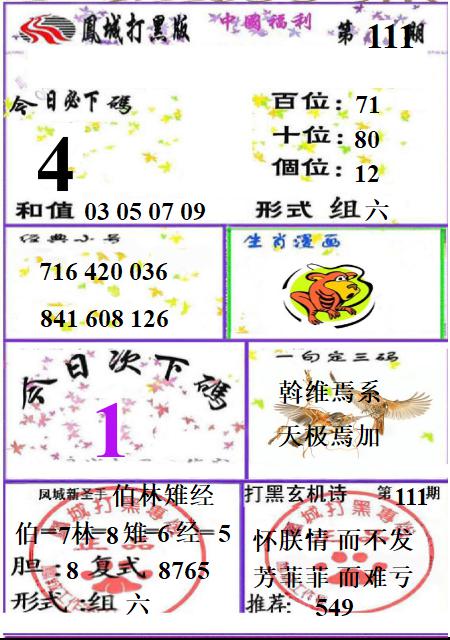 鳳城打黑版 中國福利 第111期
今日必下碼
4
百位：71
十位：80
個位：12
和值 03 05 07 09
形式 组六
经典小号
716 420 036
841 608 126
生肖漫画
今日次下碼
1
一句定三码
斡维焉系
天极焉加
凤城新圣手 伯林雉经
伯=7林=8 雉=6 经=5
胆：8 复式 8765
形式：组 六
打黑玄机诗 第111期
怀朕情 而不发
芳菲菲 而难亏
推荐： 549